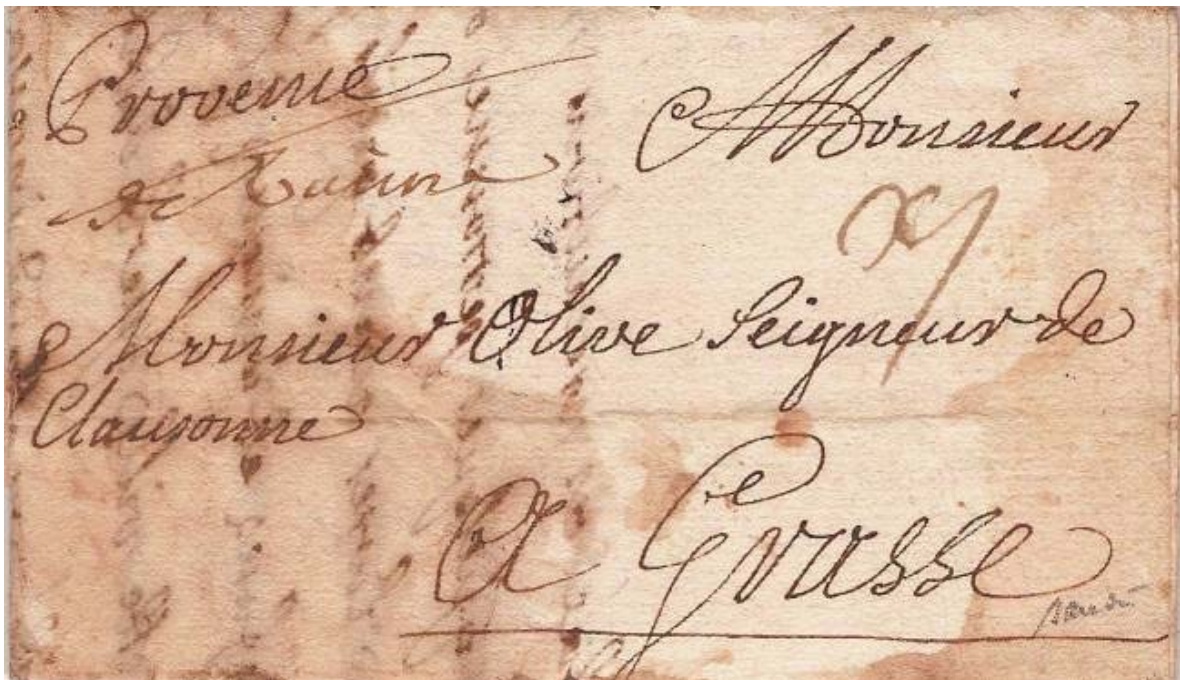 Provence
Monsieur
de
Monsieur Olive Seigneur de
Clausonne
A Grasse